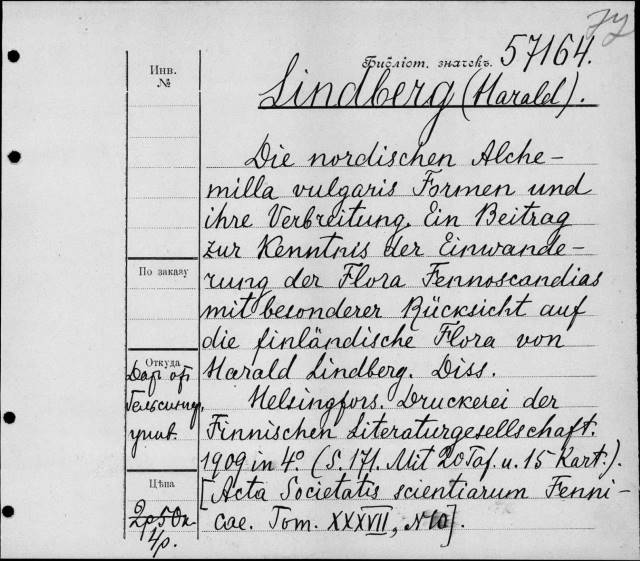 77
Библіот. значекъ. 57164.
Lindberg (Harald).
Инв.
№
Die nordischen Alche-
milla vulgaris Formen und
ihre Verbreitung. Ein Beitrag
zur Kenntnis der Einwande-
rung der Flora Fennoscandias
mit besonderer Rücksicht auf
die finländische Flora von
Harald Lindberg. Diss.
Helsingfors. Druckerei der
Finnischen Literaturgesellschaft.
1909 in 4º. (S. 171. Mit 20 Taf. u. 15 Kart.).
[Acta Societatis scientiarum Fenni-
cae. Tom. XXXVII, N 10].
По заказу
Откуда
Даръ отъ
Гельсингф.
унив.
Цѣна
2р 50к
4р.